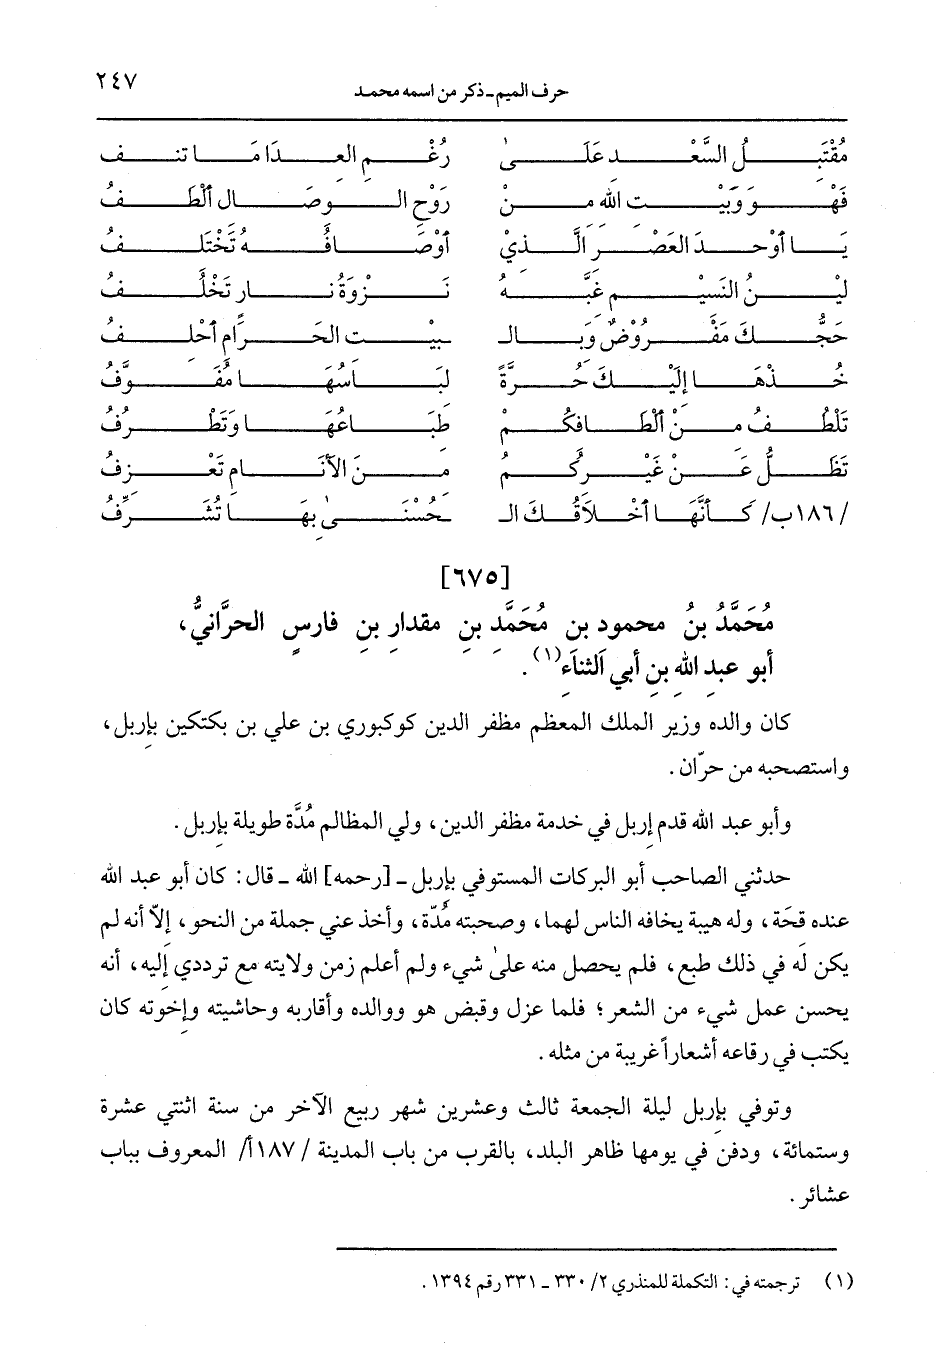 حرف الميم - ذكر من اسمه محمد ٢٤٧
مُقْتَبِلُ السَّعْدِ عَلَىٰ رُغْمِ العِدَا مَا تنفُ
فَهْوَ وَبَيْتِ اللهِ مِنْ رَوْحِ الوِصَالِ أَلْطَفُ
يَا أَوْحَدَ العَصْرِ الَّذِيْ أَوْصَافُهُ تَخْتَلِفُ
لِيْنُ النَسِيْمِ غَبَّهُ نَزْوَةُ نارٍ تَخْلُفُ
حَجُّكَ مَفْرُوْضٌ وَبِالـ ـبيْتِ الحَرَامِ أَحْلِفُ
خُذْهَا إِلَيْكَ حُرَّةً لبَاسُهَا مُفَوَّفُ
تَلْطُفُ مِنْ أَلْطَافِكُمْ طِبَاعُهَا وَتَظْرُفُ
تَظَلُّ عَنْ غَيْرِكُمُ مِنَ الأَنَامِ تَعْزِفُ
/١٨٦ب/ كَأَنَّهَا أَخْلاَقُكَ الـ ـحُسْنَىٰ بِهَا تُشَرِّفُ
[٦٧٥]
مُحَمَّدُ بنُ محمودِ بنِ مُحَمَّدِ بنِ مقدارِ بنِ فارسٍ الحرَّانيُّ،
أبو عبدِ اللهِ بنِ أبي الثناءِ(١).
كان والده وزير الملك المعظم مظفر الدين كوكبوري بن علي بن بكتكين بإربل،
واستصحبه من حرّان.
وأبو عبد الله قدم إربل في خدمة مظفر الدين، ولي المظالم مُدَّة طويلة بإربل.
حدثني الصاحب أبو البركات المستوفي بإربل - [رحمه] الله - قال: كان أبو عبد الله
عنده قحَة، وله هيبة يخافه الناس لهما، وصحبته مُدّة، وأخذ عني جملة من النحو، إلاّ أنه لم
يكن له في ذلك طبع، فلم يحصل منه علىٰ شيء ولم أعلم زمن ولايته مع ترددي إليه، أنه
يحسن عمل شيء من الشعر؛ فلما عزل وقبض هو ووالده وأقاربه وحاشيته وإخوته كان
يكتب في رقاعه أشعاراً غريبة من مثله.
وتوفي بإربل ليلة الجمعة ثالث وعشرين شهر ربيع الآخر من سنة اثنتي عشرة
وستمائة، ودفن في يومها ظاهر البلد، بالقرب من باب المدينة /١٨٧أ/ المعروف بباب
عشائر.
(١) ترجمته في: التكملة للمنذري ٢/ ٣٣٠ - ٣٣١ رقم ١٣٩٤.